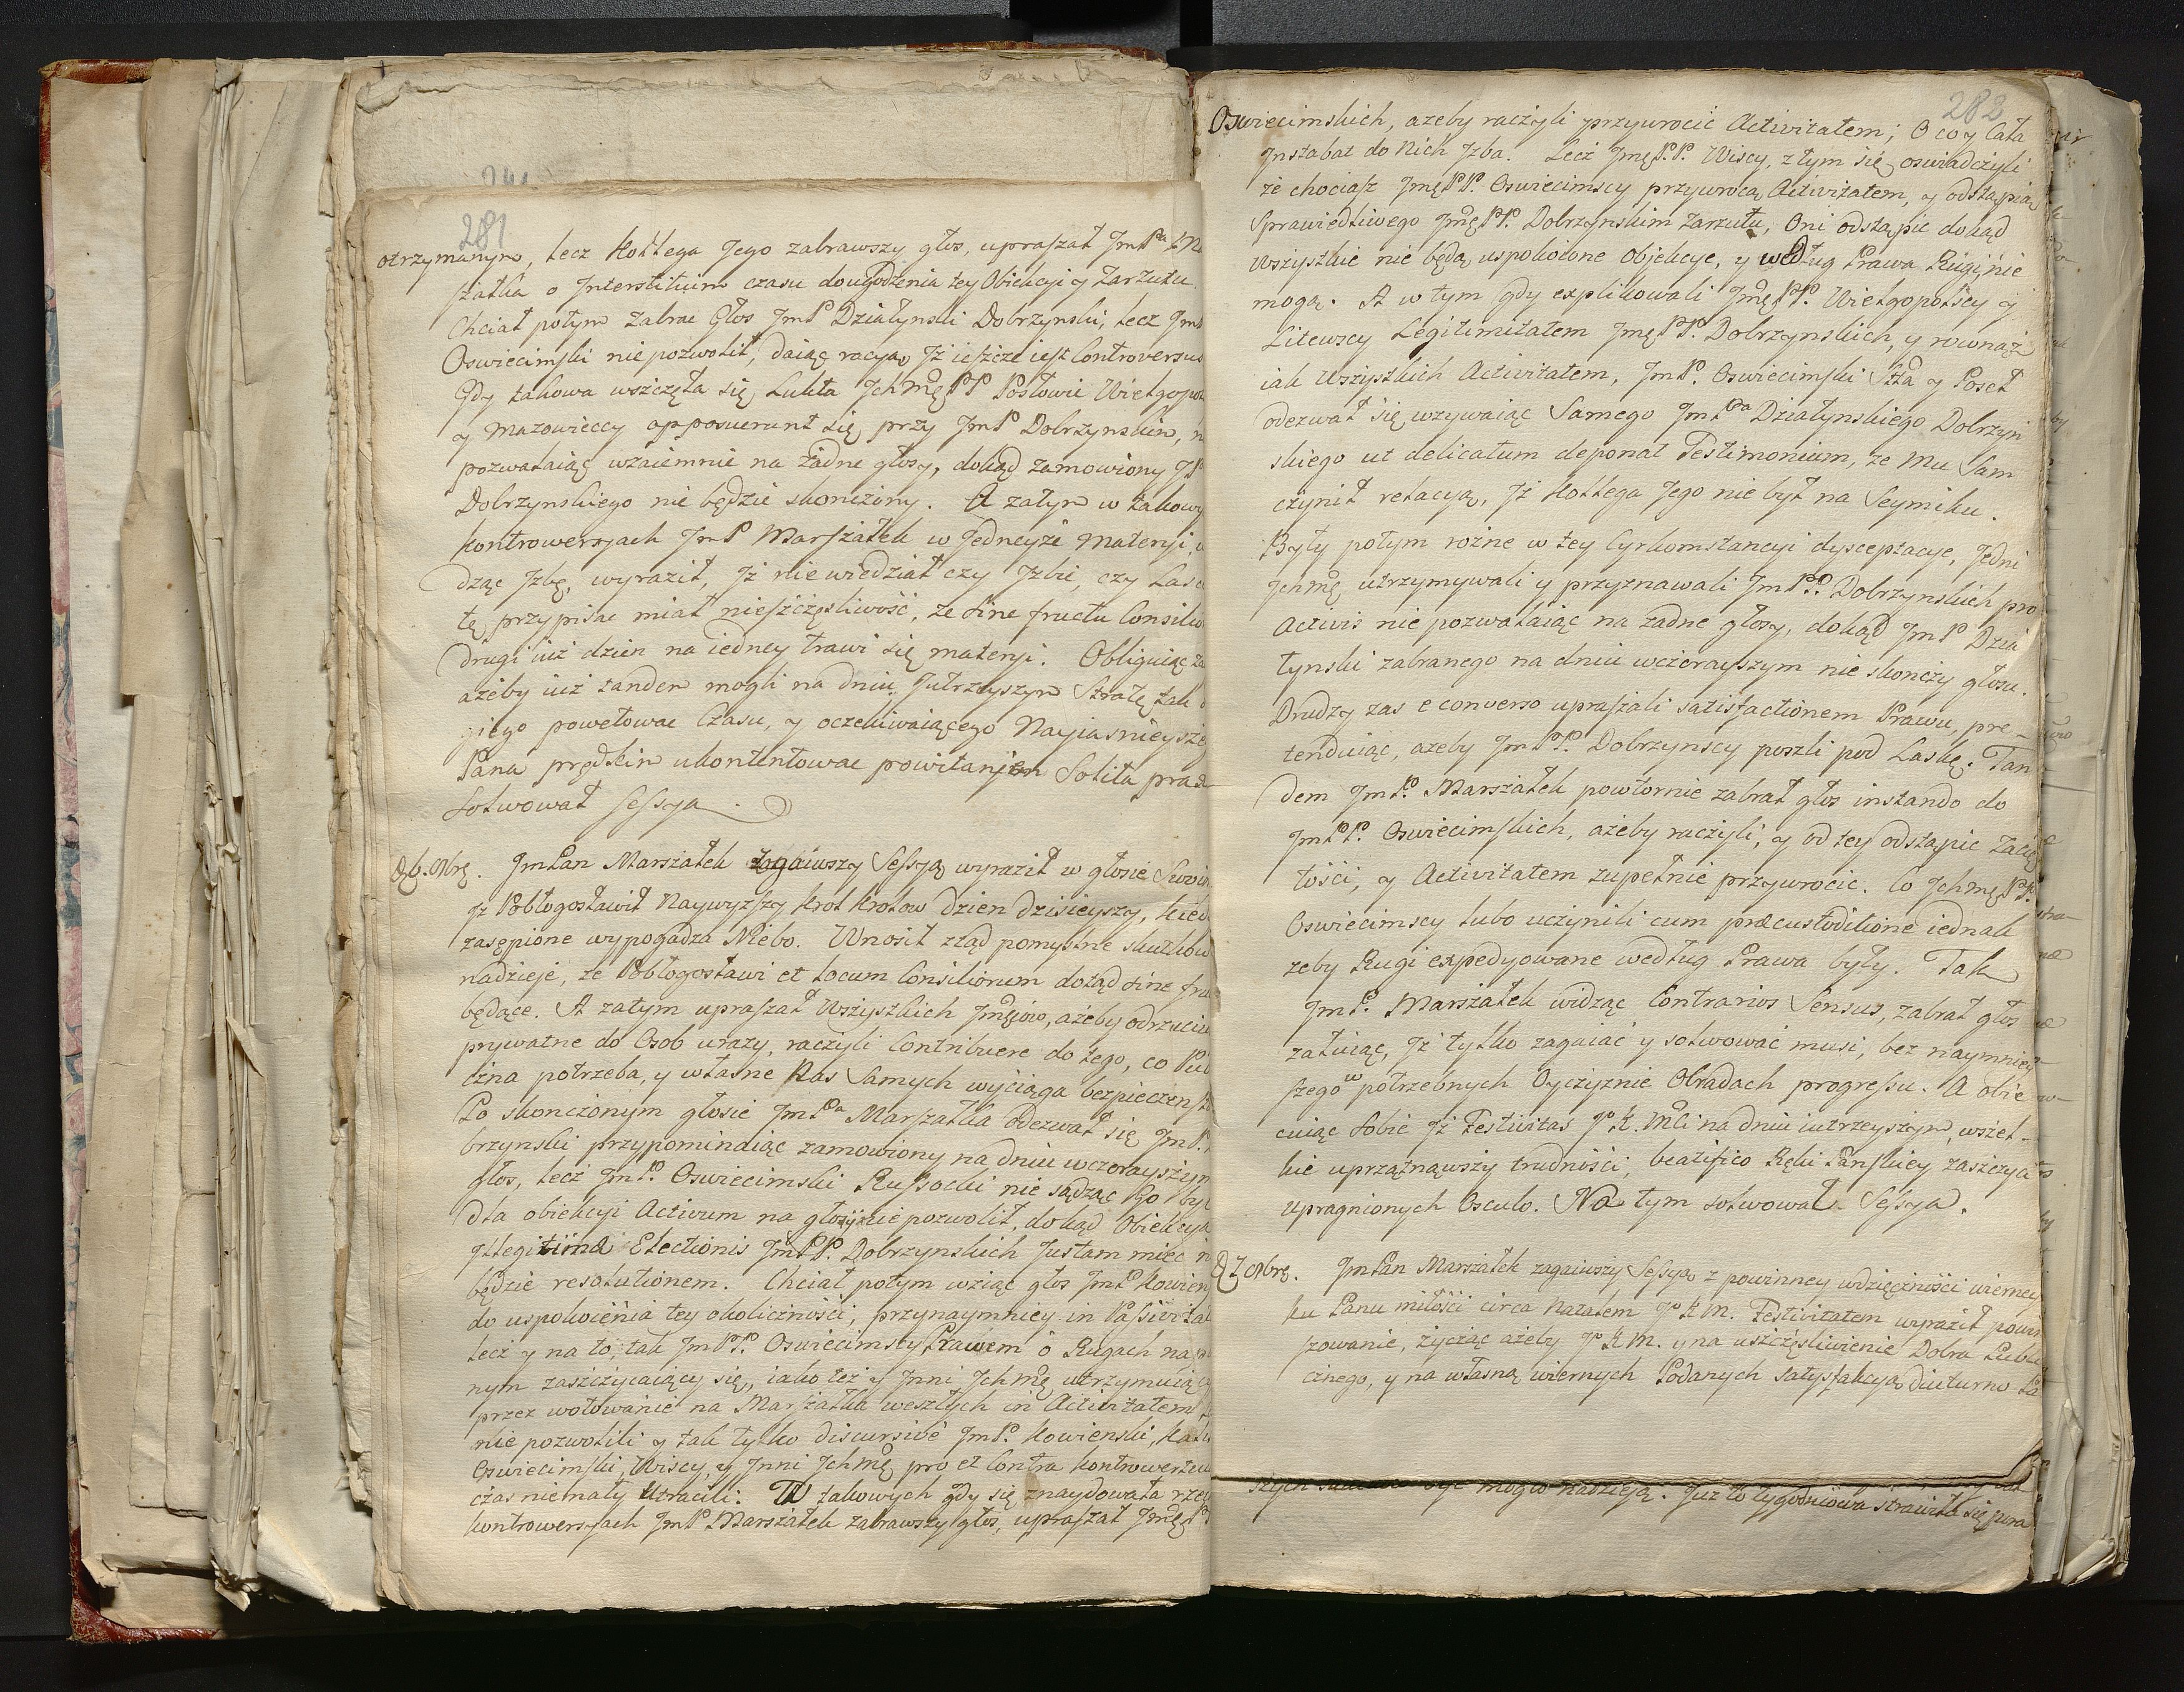 281
otrzymanym, lecz Kollega Jego zabrawszy głos, upraszał JmPa Ma
szałka o Interstitium czasu do ugodzenia tey Obiekcyi y Zarzutu.
Chciał potym zabrac Głos JmP Działynski Dobrzynski, lecz Jm
Oswiecimski nie pozwolił, daiąc racyą Jż ieszcze iest Controversus
Gdy takowa wszczęła się Lukta Jchmę PP Posłowie Wielgopol
y Mazowieccy opposuerunt się przy JmP Dobrzynskim, n
pozwalaiąc wzaiemnie na żadne głosy, dokąd zamowiony JP
Dobrzynskiego nie będzie skończony. A zatym w takowy
kontrowersyach JmP Marszałek w Jedneyże Materyi, w
dząc Jzbę, wyraził, Jż nie wiedział czy Jzbie, czy Lasc
tę przypisac miał nieszczęsliwość, że sine fructu Consilio
drugi iuż dzien na iedney trawi się materyi. Obliguiąc za
ażeby iuż tandem mogli na dniu Jutrzeyszym Stratę tak d
giego powetowac Czasu, y oczekiwaiącego Nayiasnieysze
Pana prędkim ukontentowac powitaniem Solita praxi
solwował sessya.
D 6. Obrę. JmPan Marszałek zagaiwszy Sessyą wyraził w głosie Swoim
Jż Pobłogosławił Naywyzszy Krol Krolow dzien dzisieyszy, kied
zasępione wypogadza Niebo. Wnosił ztąd pomyslne skutkow
nadzieje, ze Pobłogosławi et locum Consiliorum dotąd sine fru
będące. A zatym upraszał Wszystkich Jmściow, ażeby odrzuciw
prywatne do Osob urazy, raczyli Contribuere do tego, co Pub
czna potrzeba, y własne Nas Samych wyciąga bezpieczenst
Po skonczonym głosie JmPa Marszałka odezwał się JmP.
brzynski przypominaiąc zamowiony na dniu wczorayszym
głos, lecz JmP. Oswiecimski Russocki nie sądząc Go byc
dla obiekcyi Activum na głosy nie pozwolił, dokąd Obiekcya
Jllegitima Electionis JmPP. Dobrzynskich Justam miec n
będzie resolutionem. Chciał potym wziąc głos JmP Kowien
do uspokoienia tey okoliczności, przynaymniey in Passivital
lecz y na to, tak JmPP. Oswiecimscy Prawem o Rugach na
nym zaszczycaiący się, iako też y Jnni Jchmę utrzymuiąc
przez wotowanie na Marszałka weszłych in Activitatem
nie pozwolili y tak tylko discursive JmP. Kowienski,
Oswiecimski, Wiscy, y Jnni Jchmę pro et Contra kontrowertu
czas niemały utracili. W takowych gdy się znaydowała rze
kontrowersyach JmP Marszałek zabrawszy głos, upraszał Jmę P
283
Oswiecimskich, azeby raczyli przywrocic Activitatem; O co y Cała
Jnstabat do Nich Jzba. Lecz Jmę P.P. Wiscy, z tym się oswiadczyli
że chociasz JmęPP. Oswiecimscy przywrocą Activitatem, y odstąpią
Sprawiedliwego JmęPP. Dobrzynskim zarzutu, Oni odstąpic dokąd
wszystkie nie będą uspokoione Objekcye, y według Prawa Rugi, nie
mogą. A w tym gdy explikowali JmęPP. Wielgopolscy y
Litewscy Legitimitatem JmęPP. Dobrzynskich, y rownąż
iak Wszystkich Activitatem, JmP. Oswiecimski Stta y Poseł
odezwał się wzywaiąc Samego JmPa Działynskiego Dobrzyn
skiego ut delicatum deponat Testimonium, że Mu Sam
czynił relacyą, Jż Kollega Jego nie był na Seymiku.
Były potym rożne w tey Cyrkomstancyi dysceptacye, Jedni
Jchmę utrzymywali y przyznawali JmPP. Dobrzynskich pro
Activis nie pozwalaiąc na żadne głosy, dokąd JmP Dzia
łynski zabranego na dniu wczorayszym nie skonczy głosu.
Drudzy zas e converso upraszali satisfactionem Prawu, pre-
tenduiąc, azeby JmPP. Dobrzynscy poszli pod Laskę. Tan
dem JmP. Marszałek powtornie zabrał głos instando do
JmPP. Oswiecimskich, ażeby raczyli, y od tey odstąpic Zacię
tości, y Activitatem zupełnie przywrocic. Co JchmęPP.
Oswiecimscy lubo uczynili cum præcustoditione iednak
zeby Rugi expedyowane według Prawa były. Tak
JmP. Marszałek widząc Contrarios Sensus, zabrał głos
załuiąc, Jż tylko zagaiać y solwować musi, bez naymniey
szego w potrzebnych Oyczyznie Obradach progressu. A obie
cuiąc sobie Jż Festivitas J. K. Mci na dniu iutrzeyszym, wszel-
kie uprzątnąwszy trudności, beatifico Ręki Panskiey zaszczyci
upragnionych Osculo. Na tym solwował Sessya.
D 7 Obrę. JmPan Marszałek zagaiwszy Sessyą z powinney wdzięczności wierney
ku Panu miłości circa Natalem J K M. Festivitatem wyraził powin
szowanie, życząc ażeby J K M. y na uszczęsliwienie Dobra Publi
cznego, y na własną wiernych Poddanych satysfakcyą diuturno
być mogło nadzieją. Już to tygodniowa strawiła się pora